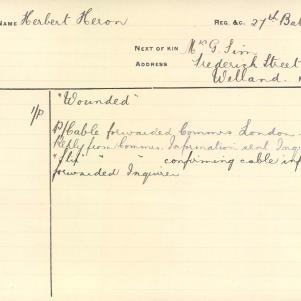 NAME Herbert Heron REG. &C. 27th Bat
NEXT OF KIN Mrs G. Sim
ADDRESS Frederick Street
Welland.
"Wounded"
1/P P/Cable forwarded Commrs London.
Reply from Commrs. Information sent Inqui
" " " confirming cable inf
forwarded Inquirer